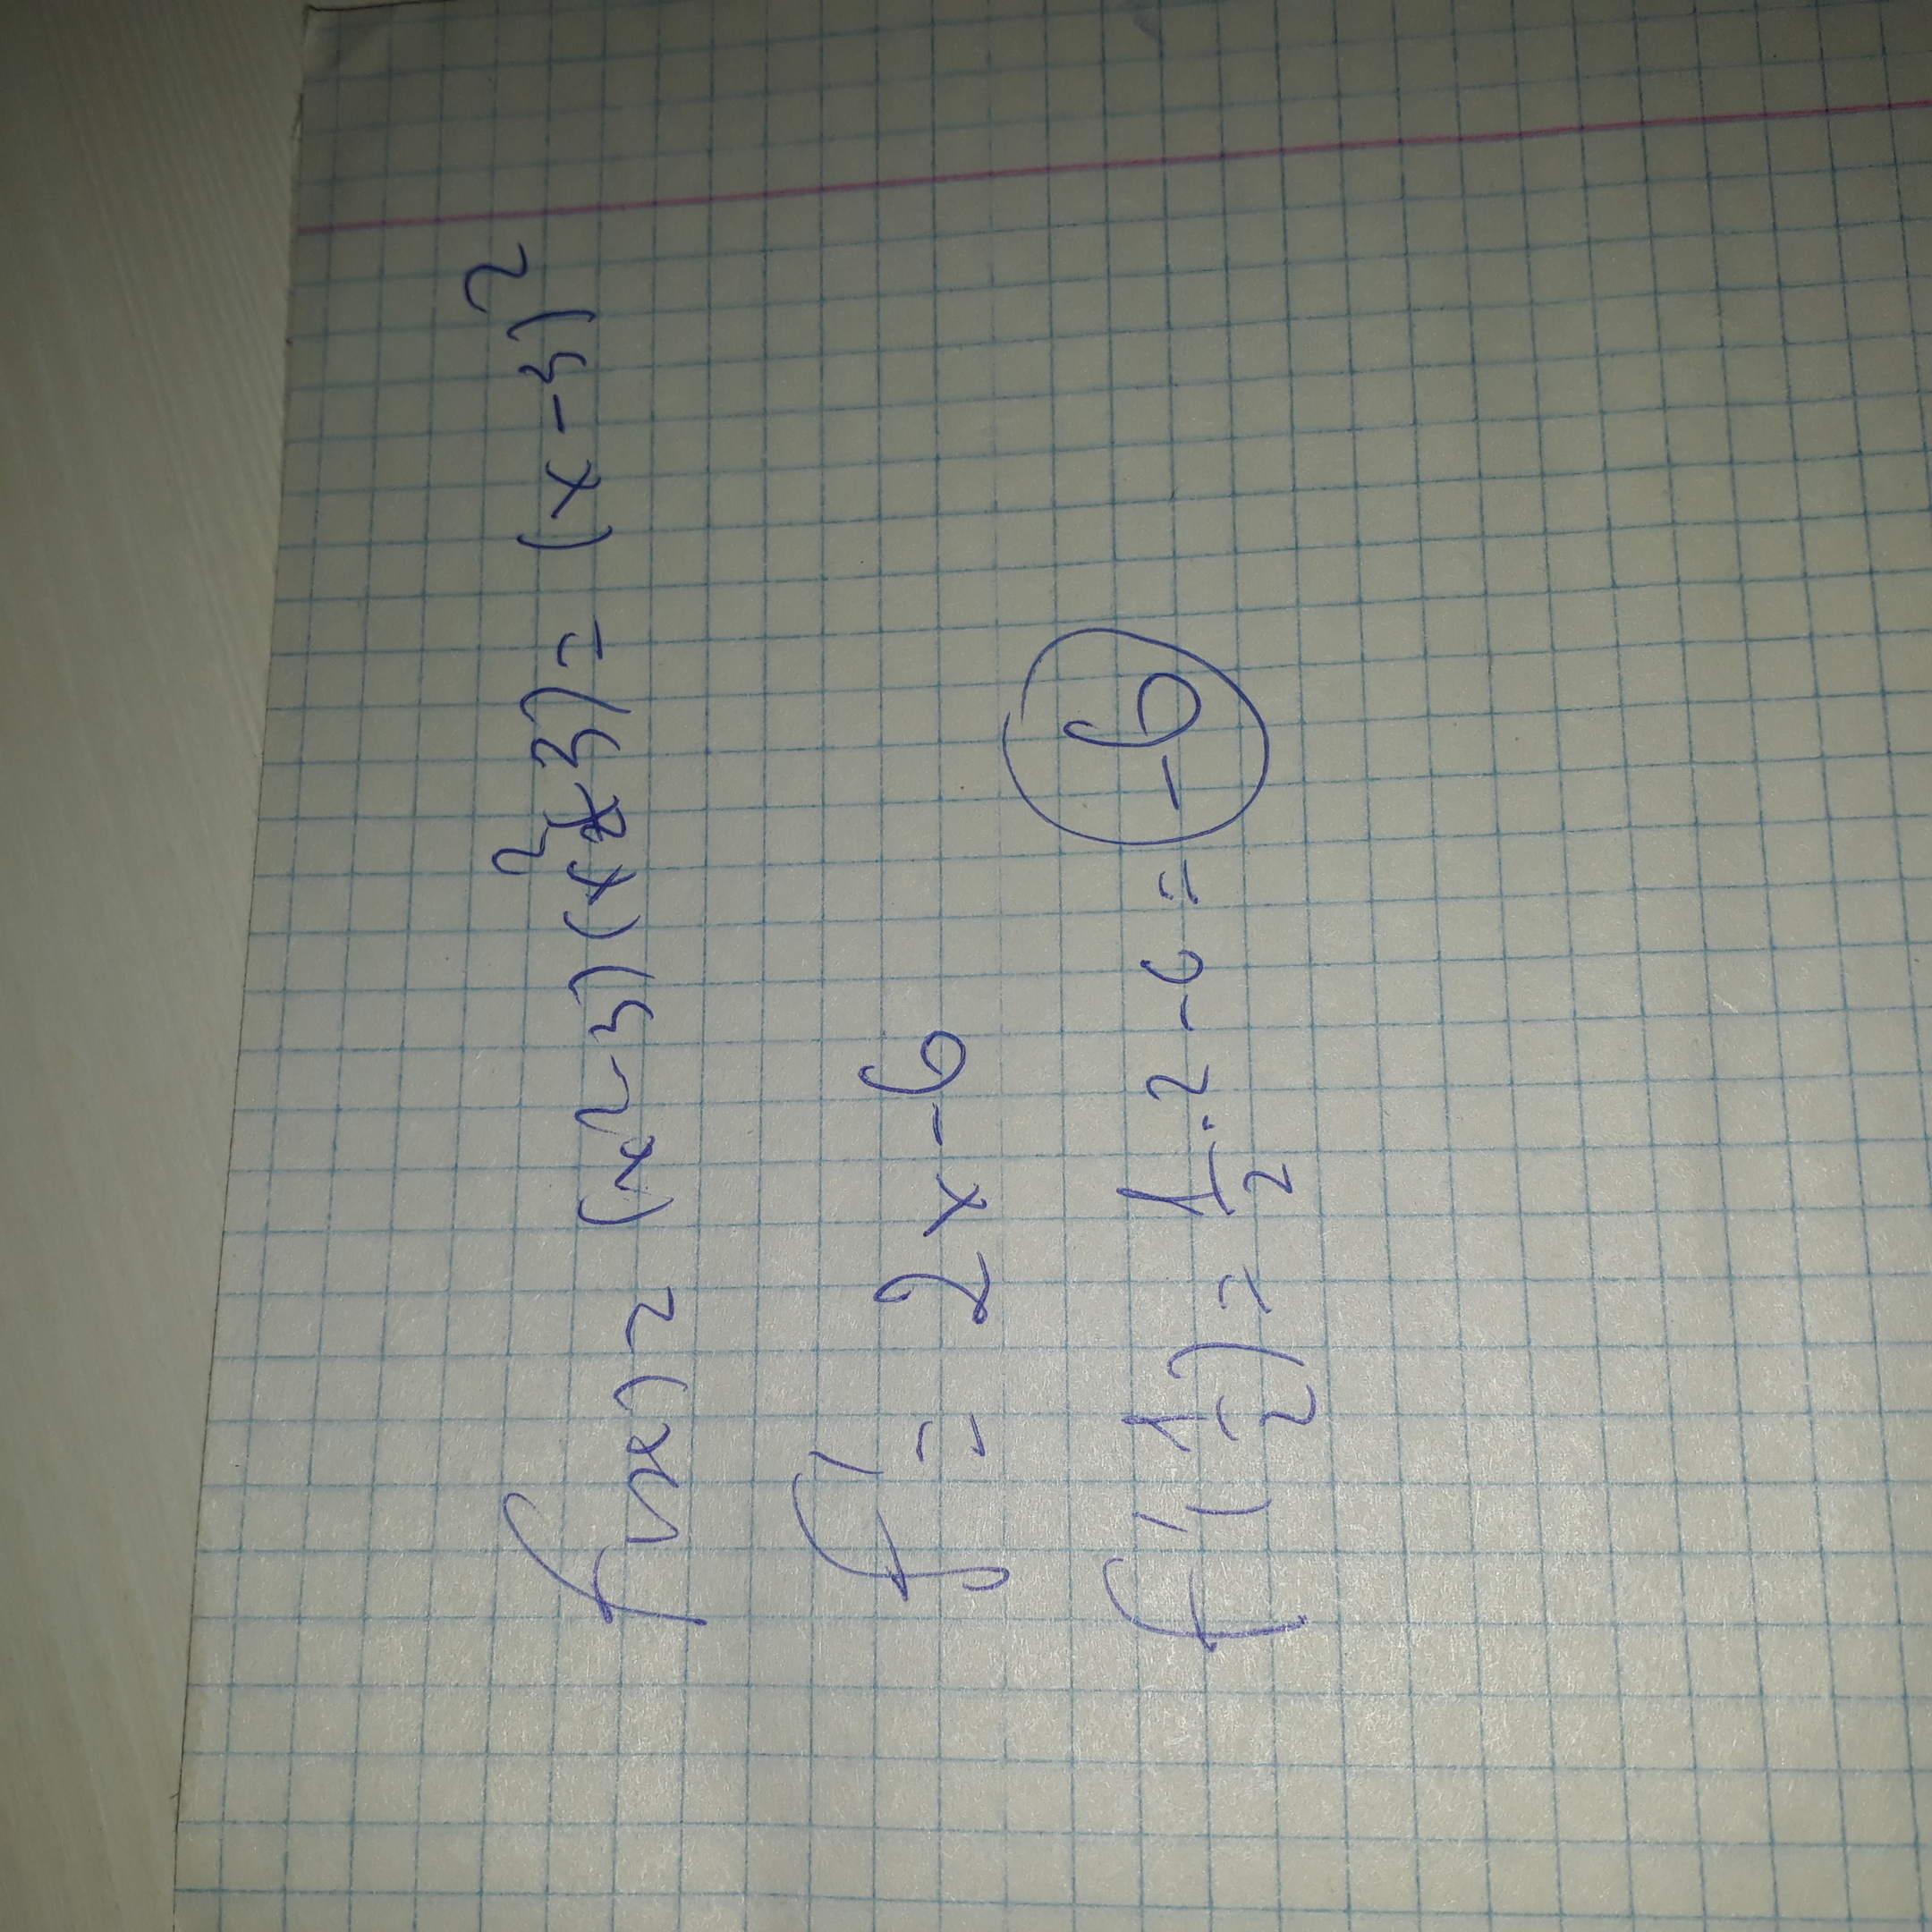 f(x) = (x²-3)(x²+3) = (x-3)²
f' = 2x-6
f'(1/2) = 1/2·2-6 = -6